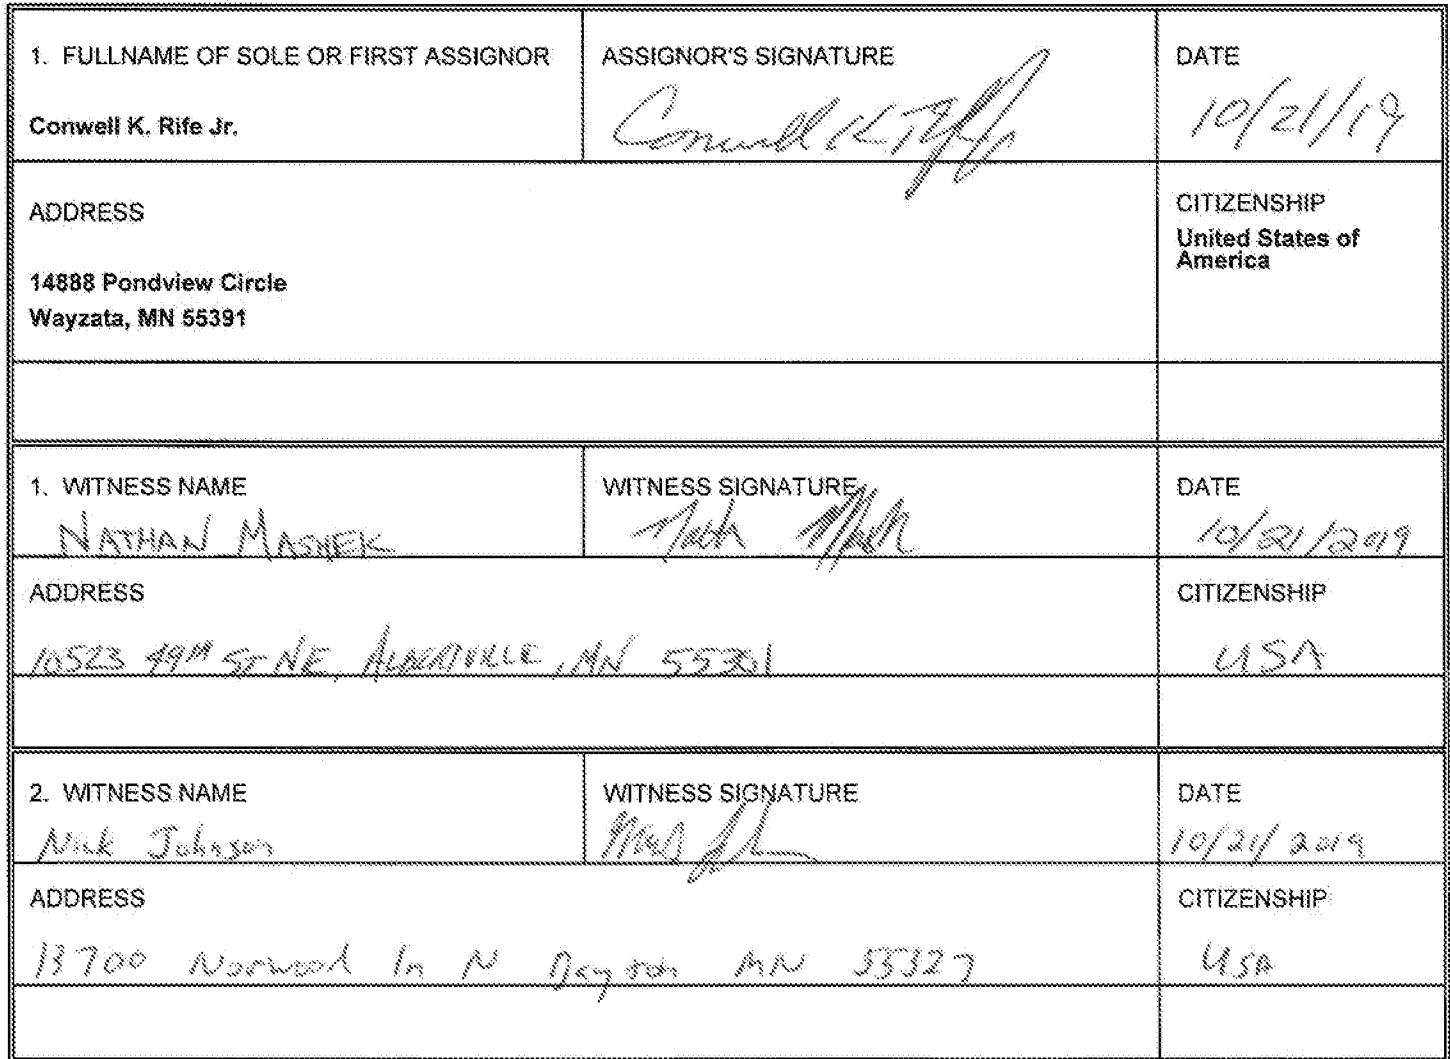 1. FULLNAME OF SOLE OR FIRST ASSIGNOR
Conwell K. Rife Jr.
ASSIGNOR'S SIGNATURE
Conwell K Rife Jr
DATE
10/21/19
ADDRESS
14888 Pondview Circle
Wayzata, MN 55391
CITIZENSHIP
United States of
America
1. WITNESS NAME
NATHAN MASHEK
WITNESS SIGNATURE
DATE
10/21/2019
ADDRESS
10523 49th ST NE, ALBERTVILLE, MN 55301
CITIZENSHIP
USA
2. WITNESS NAME
Nick Johnson
WITNESS SIGNATURE
DATE
10/21/2019
ADDRESS
13700 Norwood ln N Dayton MN 55327
CITIZENSHIP
USA